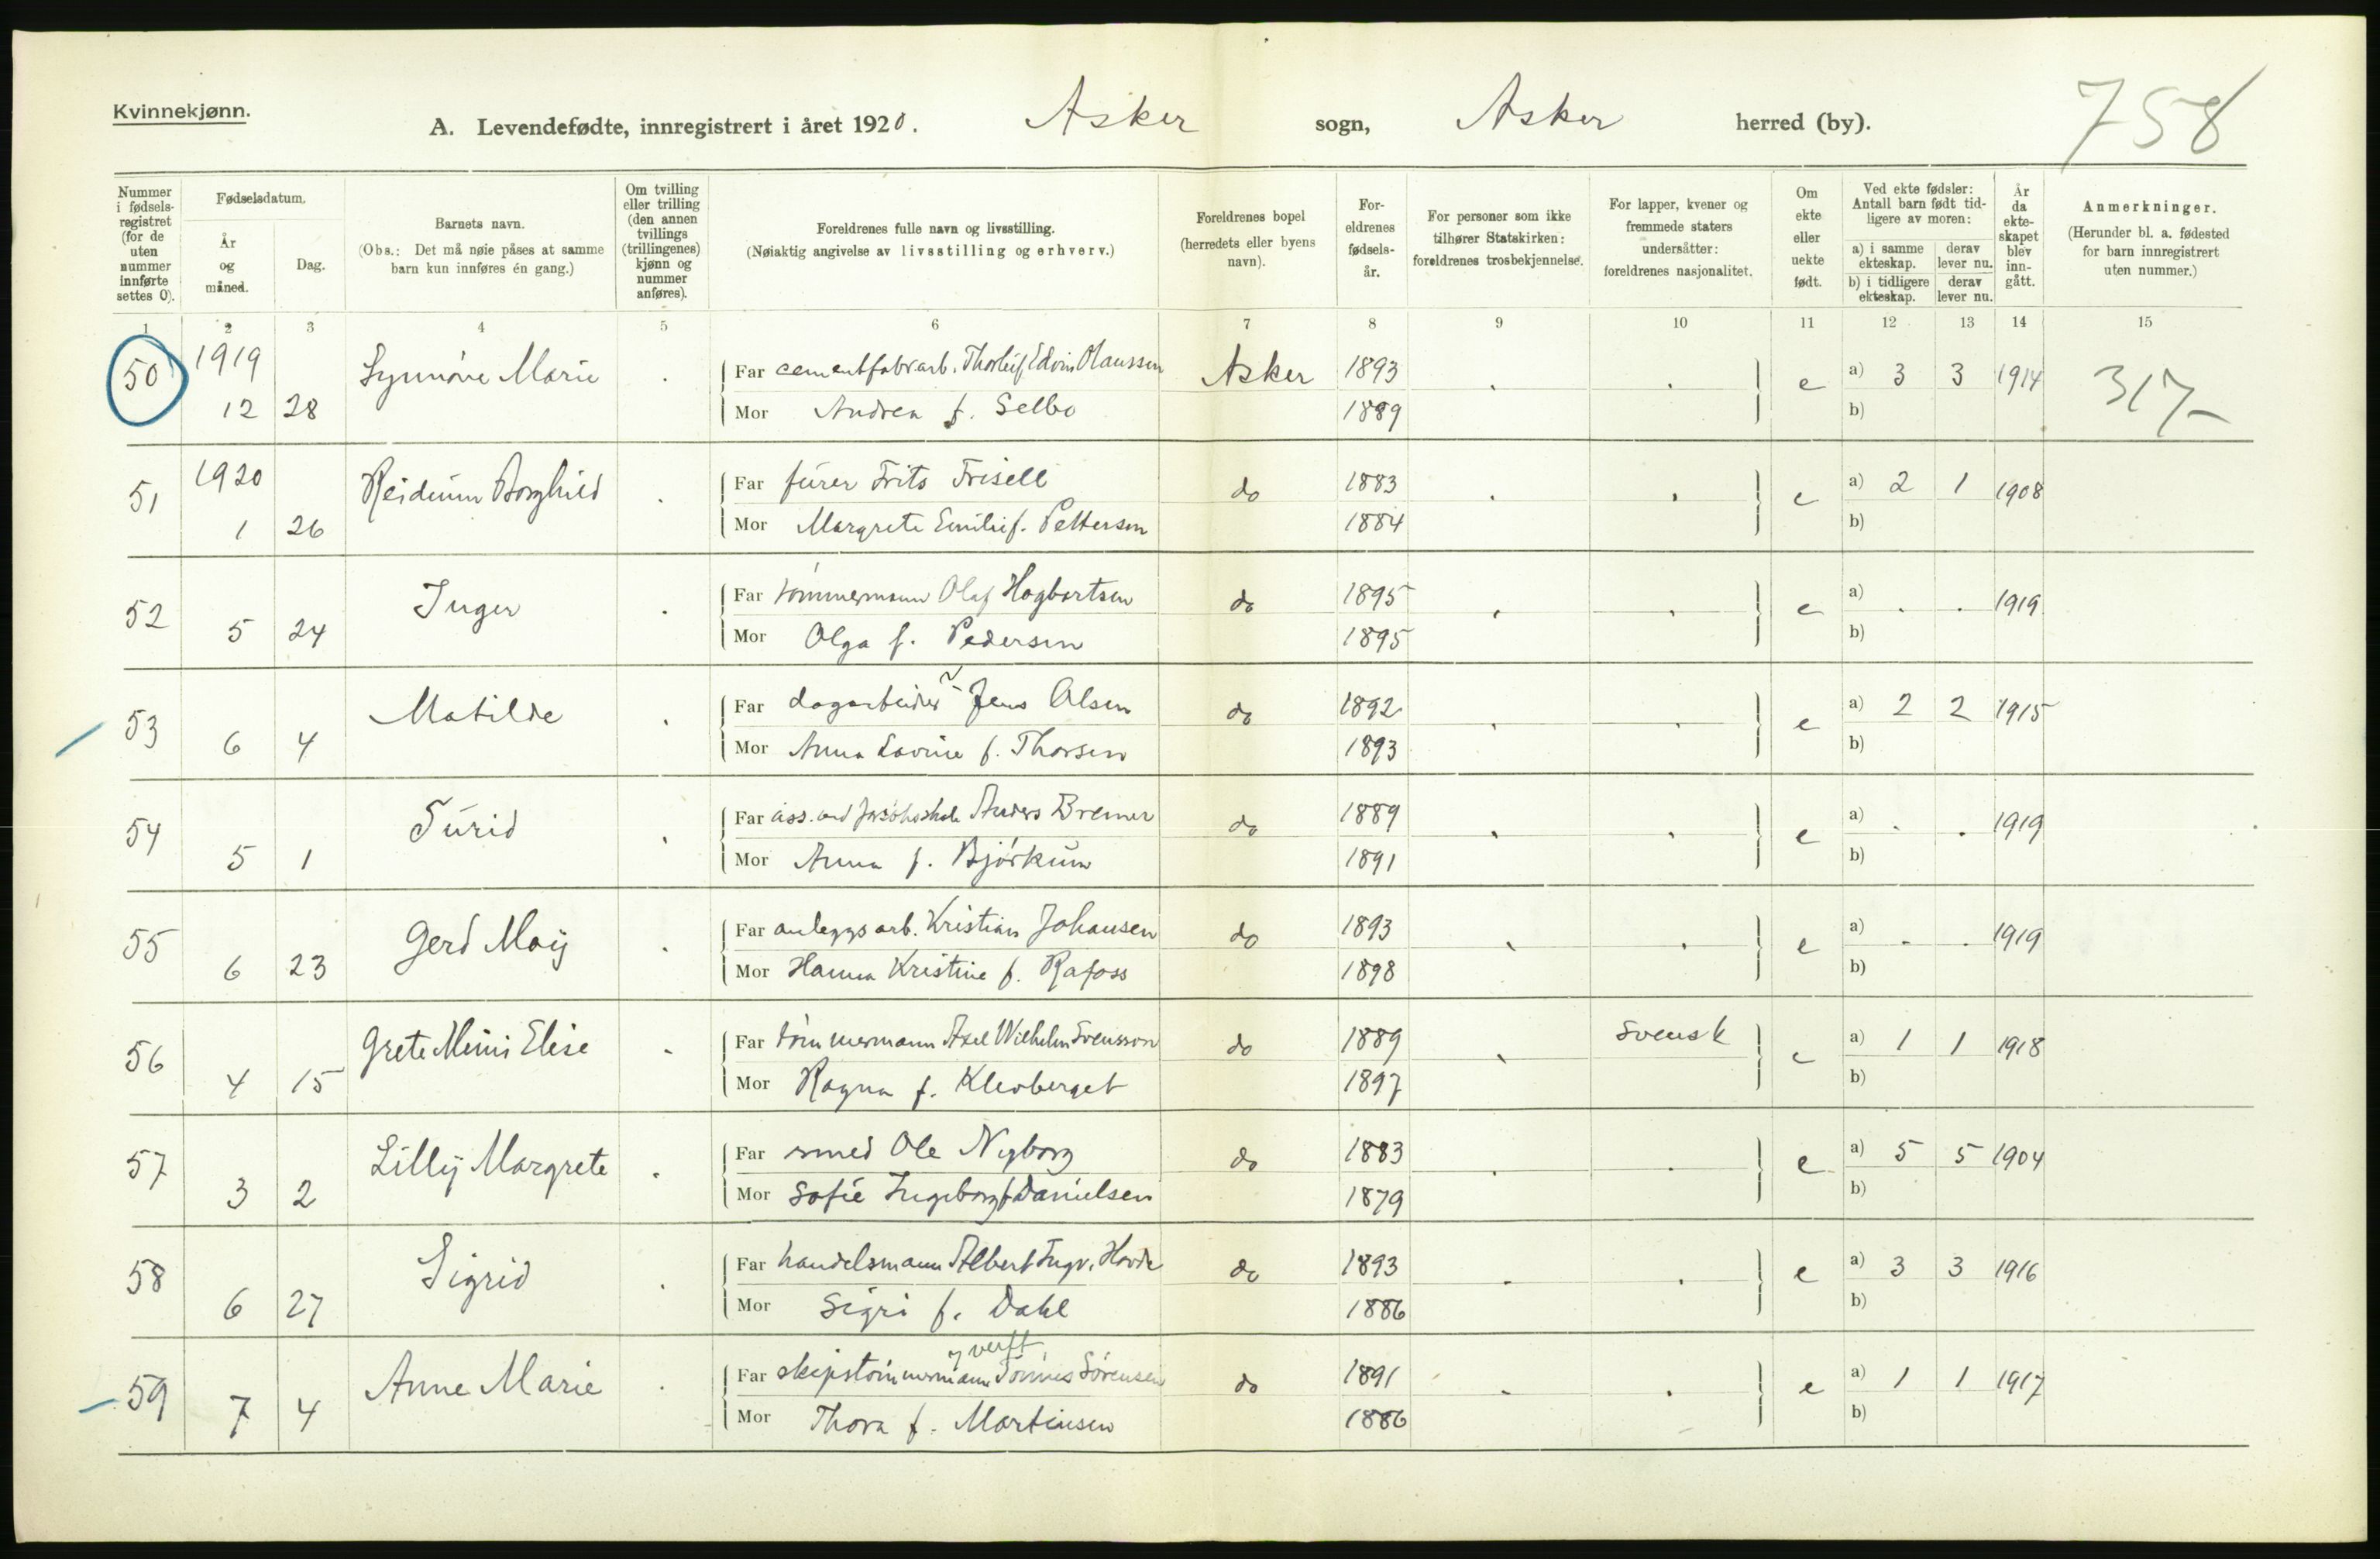 Kvinnekjønn.
A. Levendefødte, innregistrert i året 1920. Asker sogn, Asker herred (by). 758
Nummer i fødsels-registret (for de uten nummer innførte settes 0).
Fødselsdatum.
År og måned.
Dag.
Barnets navn.
(Obs.: Det må nøie påses at samme barn kun innføres én gang.)
Om tvilling eller trilling (den annen tvillings (trillingenes) kjønn og nummer anføres).
Foreldrenes fulle navn og livsstilling.
(Nøiaktig angivelse av livsstilling og erhverv.)
Foreldrenes bopel (herredets eller byens navn).
For-eldrenes fødsels-år.
For personer som ikke tilhører Statskirken: foreldrenes trosbekjennelse.
For lapper, kvener og fremmede staters undersåtter: foreldrenes nasjonalitet.
Om ekte eller uekte født.
Ved ekte fødsler: Antall barn født tid-ligere av moren:
a) i samme ekteskap. derav lever nu.
b) i tidligere ekteskap. derav lever nu.
År da ekte-skapet blev inn-gått.
Anmerkninger.
(Herunder bl. a. fødested for barn innregistrert uten nummer.)
1 2 3 4 5 6 7 8 9 10 11 12 13 14 15
50 1919 12 28 Synnöve Marie . Far cementfabrarb. Thorleif Edvin Olaussen Asker 1893 . . e a) 3 3 1914 317-
Mor Andrea f. Selbo 1889 b)
51 1920 1 26 Reidunn Borghild . Far fürer Frits Frisell do 1883 . . e a) 2 1 1908
Mor Margrete Emilie f. Pettersen 1884 b)
52 5 24 Inger . Far tömmermann Olaf Hagbartsen do 1895 . . e a) . . 1919
Mor Olga f. Pedersen 1895 b)
53 6 4 Matilde . Far dagarbeider Jens Olsen do 1892 . . e a) 2 2 1915
Mor Anna Lovine f. Thorsen 1893 b)
54 5 1 Turid . Far ass. ved Anders Bremer do 1889 . . e a) . . 1919
Mor Anna f. Björkum 1891 b)
55 6 23 Gerd Maij . Far anleggsarb. Kristian Johansen do 1893 . . e a) . . 1919
Mor Hanna Kristine f. Rafoss 1898 b)
56 4 15 Grete Mimi Elise . Far tömmermann Axel Wilhelm Svensson do 1889 . svensk e a) 1 1 1918
Mor Ragna f. Klevberget 1897 b)
57 3 2 Lilly Margrete . Far smed Ole Nyborg do 1883 . . e a) 5 5 1904
Mor Sofie Ingeborg f Danielsen 1879 b)
58 6 27 Sigrid . Far handelsmann Albert Ingv. Hovde do 1893 . . e a) 3 3 1916
Mor Sigri f. Dahl 1886 b)
verft
59 7 4 Anne Marie . Far skipstömmermann Tönnes Sörensen do 1891 . . e a) 1 1 1917
Mor Thora f. Martinsen 1886 b)